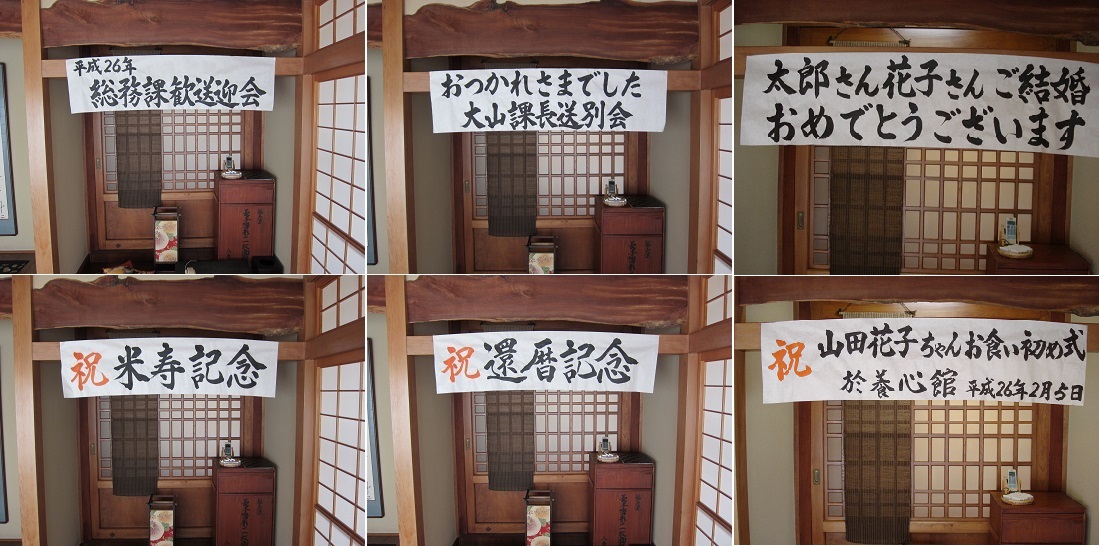 平成26年
総務課歓送迎会
おつかれさまでした
大山課長送別会
太郎さん花子さんご結婚
おめでとうございます
祝 米寿記念
祝 還暦記念
祝 山田花子ちゃんお食い初め式
於養心館 平成26年2月5日